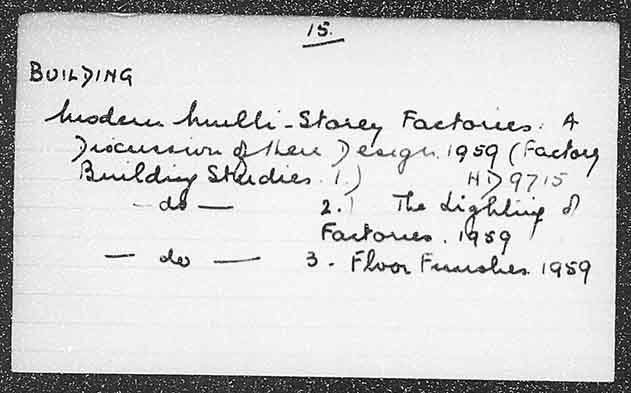 15.
BUILDING
Modern Multi-Storey Factories: A
Discussion of their Design. 1959 (Factory
Building Studies. 1.) HD9715
— do — 2. The Lighting of
Factories. 1959
— do — 3. Floor Finishes. 1959